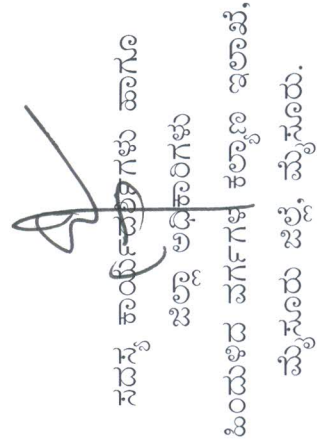 ಸದಸ್ಯ ಕಾರ್ಯದರ್ಶಿಗಳು ಹಾಗೂ
ಜಿಲ್ಲಾ ಅಧಿಕಾರಿಗಳು
ಹಿಂದುಳಿದ ವರ್ಗಗಳ ಕಲ್ಯಾಣ ಇಲಾಖೆ,
ಮೈಸೂರು ಜಿಲ್ಲೆ, ಮೈಸೂರು.